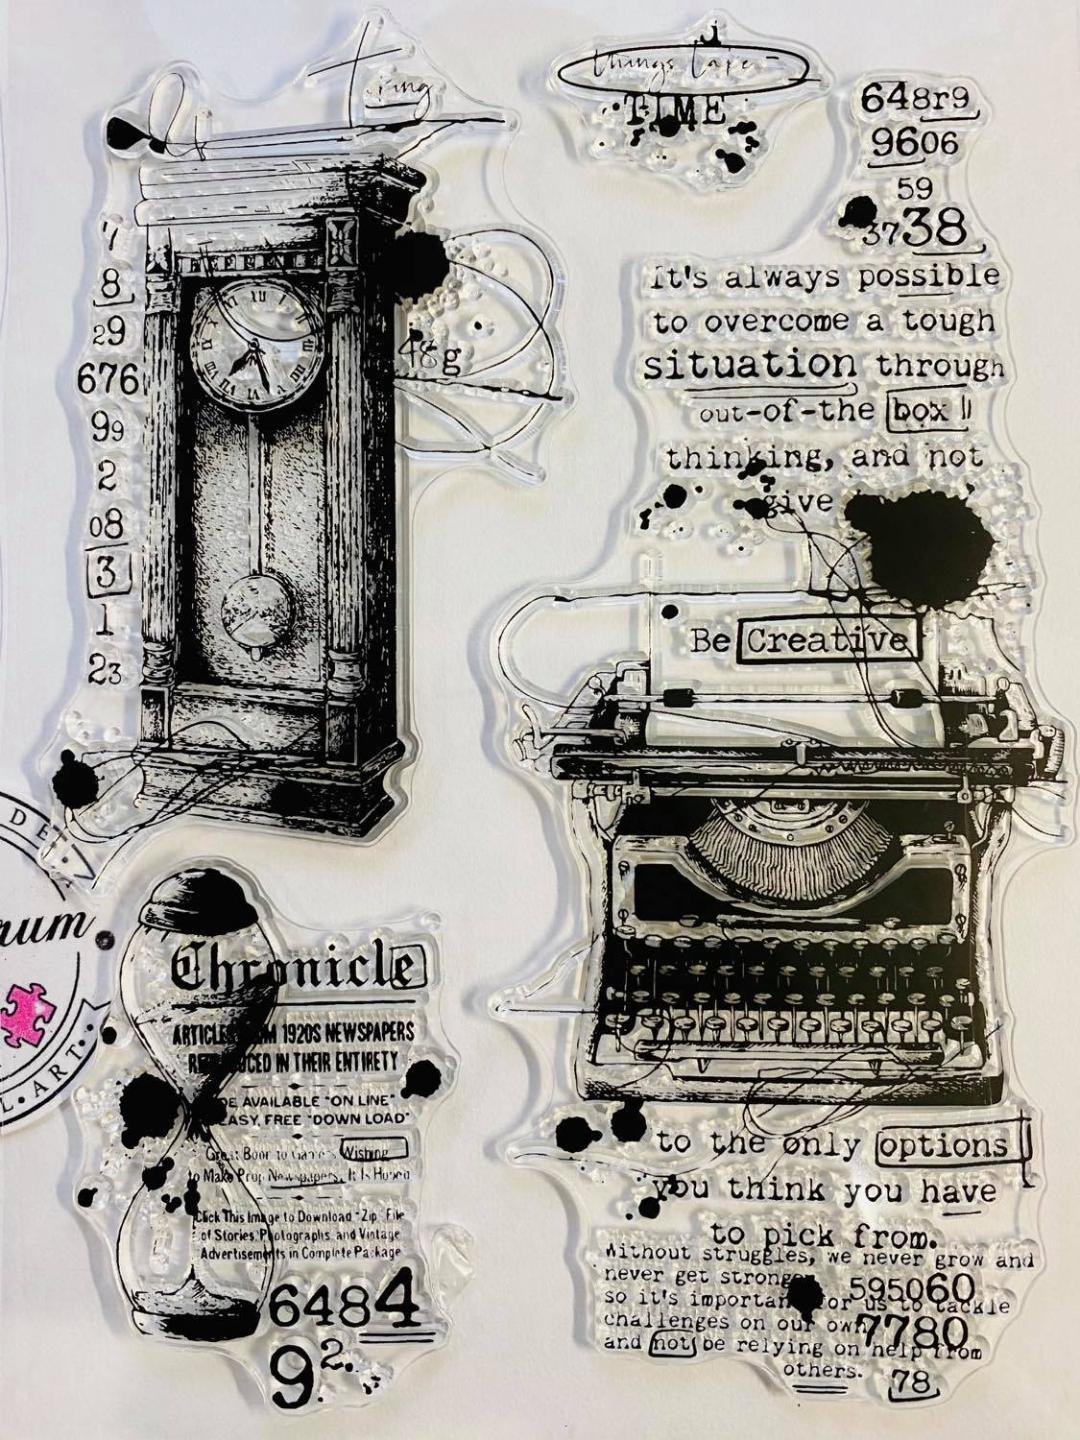 things take
TIME
648r9
9606
59
3738
It's always possible
to overcome a tough
situation through
out-of-the box
thinking, and not
give
Be Creative
to the only options
you think you have
to pick from.
Without struggles, we never grow and
never get stronger
so it's important for us to tackle
challenges on our own
and not be relying on help from
others.
595060
7780
78
7
8
29
676
99
2
08
3
1
23
48g
Chronicle
ARTICLES FROM 1920S NEWSPAPERS
REPRODUCED IN THEIR ENTIRETY
BE AVAILABLE "ON LINE"
EASY, FREE "DOWN LOAD"
Great Boon to Gamers Wishing
to Make Prop Newspapers, It Is Hoped
Click This Image to Download "Zip" File
of Stories, Photographs, and Vintage
Advertisements in Complete Package
6484
92.
DE
rum
L.ART